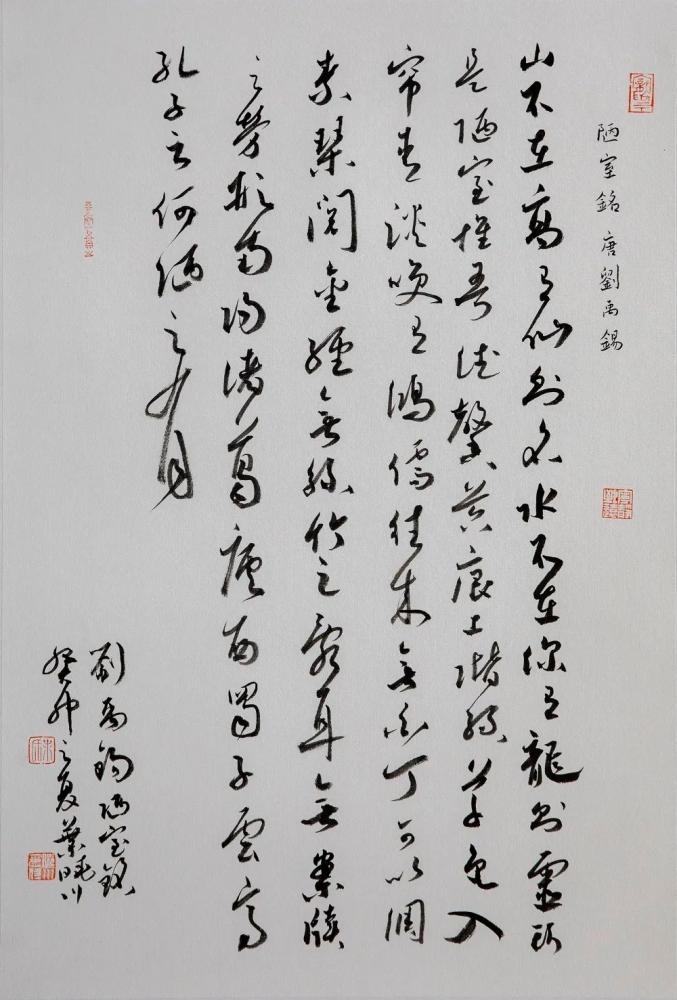 陋室銘 唐劉禹錫
山不在高有仙則名水不在深有龍則靈斯
是陋室惟吾德馨苔痕上階綠草色入
帘青談笑有鴻儒往來無白丁可以調
素琴閱金經無絲竹之亂耳無案牘
之勞形南陽諸葛廬西蜀子雲亭
孔子云何陋之有
劉禹錫陋室銘
癸卯之夏葉